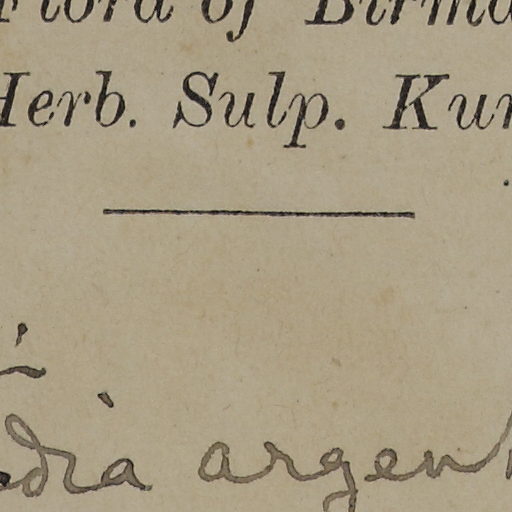 Flora of Birma
Herb. Sulp. Kur
dia argen